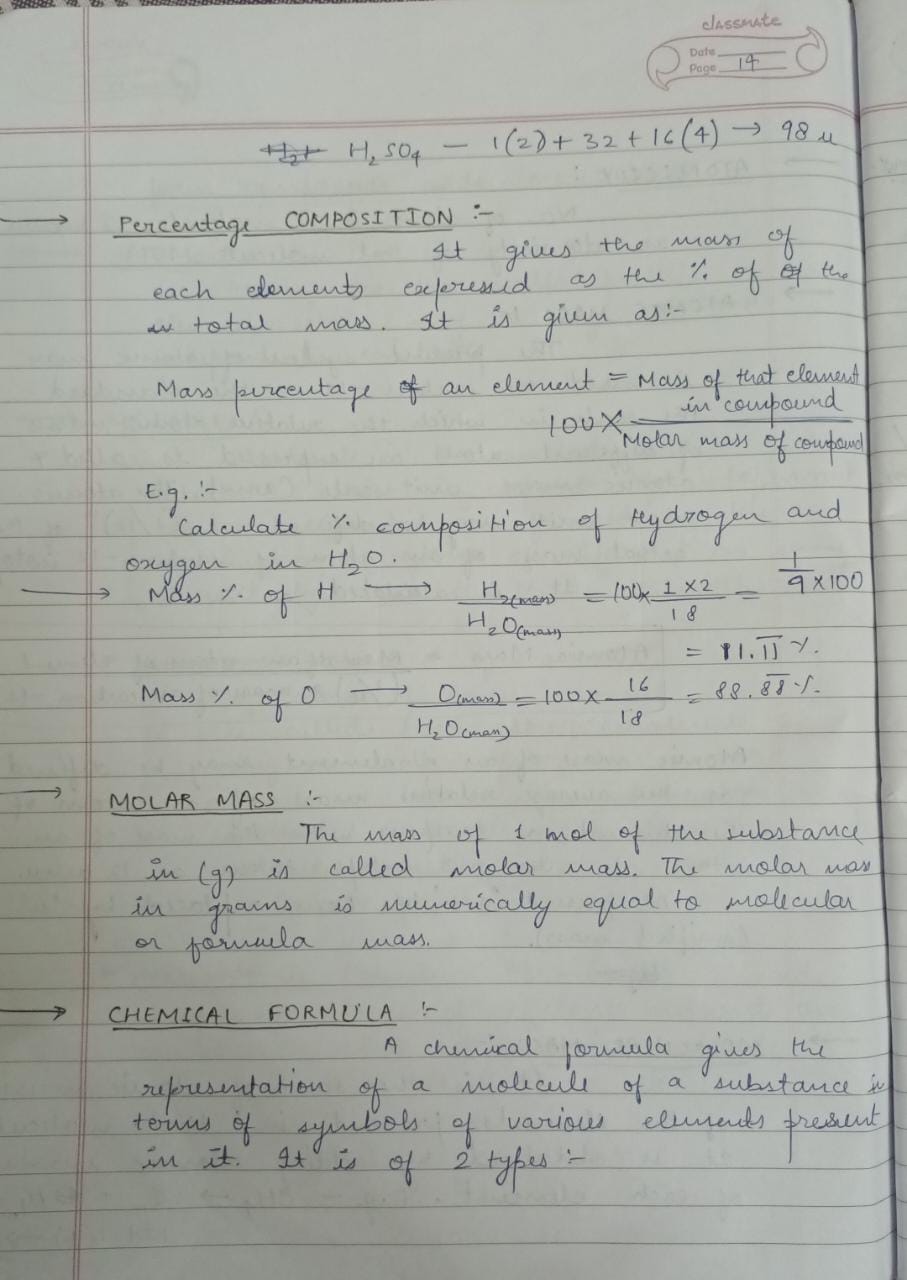 classmate
Date
Page 14
H₂SO₄ — 1(2) + 32 + 16(4) → 98 u
→ Percentage COMPOSITION :-
It gives the mass of
each elements expressed as the % of the
total mass. It is given as:-
Mass percentage of an element = Mass of that element
in compound
100 ×
Molar mass of compound
E.g. :-
Calculate % composition of Hydrogen and
oxygen in H₂O.
→ Mass % of H → H₂(mass)/H₂O(mass) = 100 × 1×2/18 = 1/9 × 100
= 11.1̅1̅ %.
Mass % of O → O(mass)/H₂O(mass) = 100 × 16/18 = 88.8̅8̅ %.
→ MOLAR MASS :-
The mass of 1 mol of the substance
in (g) is called molar mass. The molar mass
in grams is numerically equal to molecular
or formula mass.
→ CHEMICAL FORMULA :-
A chemical formula gives the
representation of a molecule of a substance in
terms of symbols of various elements present
in it. It is of 2 types :-